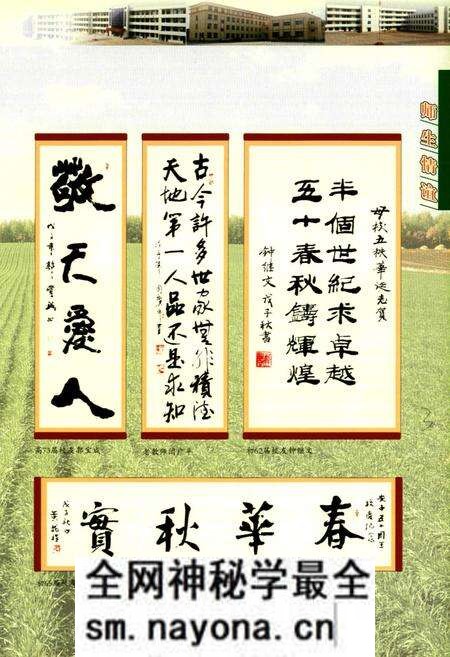 师生情谊
敬天爱人
古今許多世家無非積德
天地第一人品还是求知
母校五秩華诞志賀
半個世紀求卓越
五十春秋鑄輝煌
钟继文 戊子秋書
高73届校友郭宝成
老教师闫广平
初62届校友钟继文
春華秋實
全网神秘学最全
sm.nayona.cn